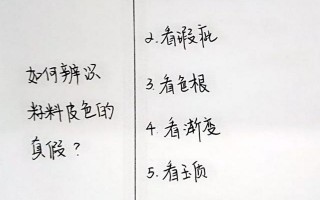 如何辨识
籽料皮色的
真假？
2.看瑕疵
3.看色根
4.看渐变
5.看玉质